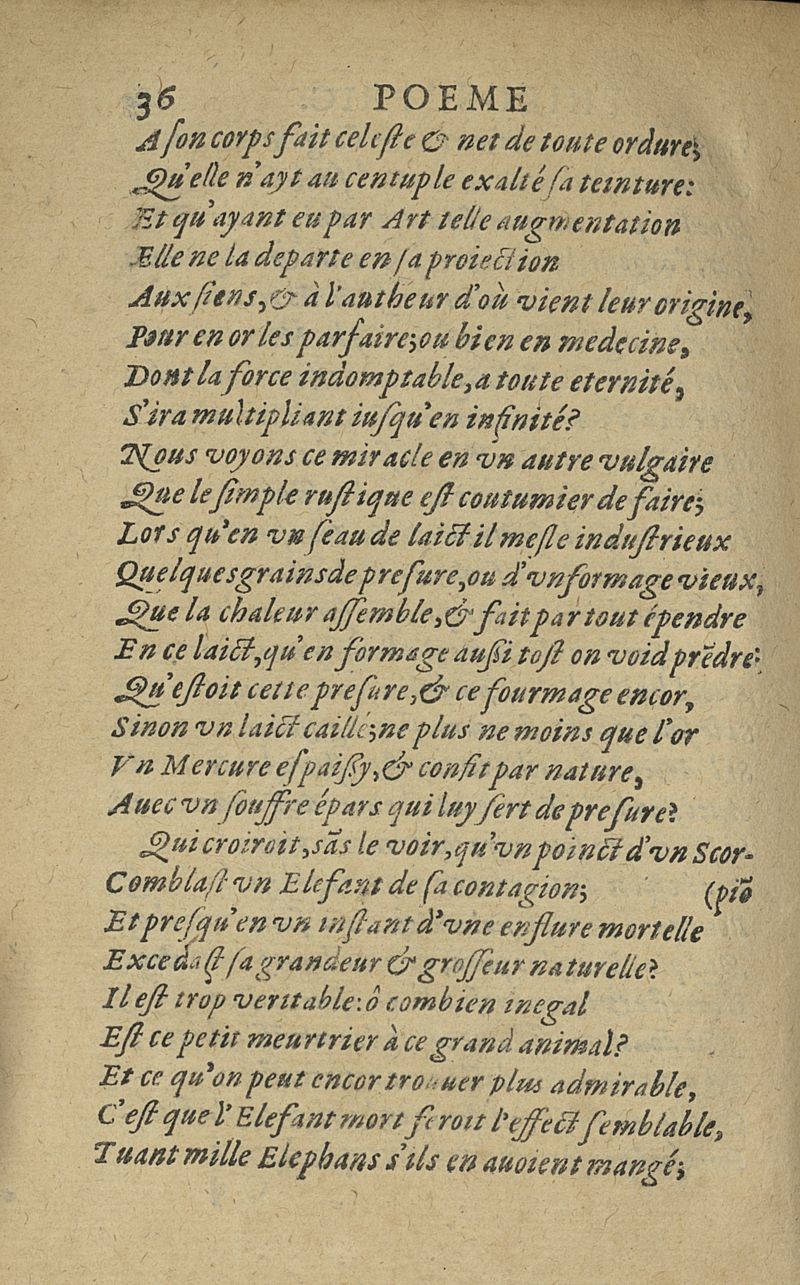 36 POEME
A ſon corps fait celeſte & net de toute ordure;
Qu'elle n'ayt au centuple exalté ſa teinture:
Et qu'ayant eu par Art telle augmentation
Elle ne la departe en ſa proiection
Aux ſiens, & à l'autheur d'où vient leur origine,
Pour en or les parfaire; ou bien en medecine,
Dont la force indomptable, a toute eternité,
S'ira multipliant iuſqu'en infinité?
Nous voyons ce miracle en vn autre vulgaire
Que le ſimple ruſtique eſt coutumier de faire;
Lors qu'en vn ſeau de laict il meſle induſtrieux
Quelques grains de preſure, ou d'vn formage vieux,
Que la chaleur aſſemble, & fait par tout épendre
En ce laict, qu'en formage auſſi toſt on void prẽdre:
Qu'eſtoit cette preſure, & ce fourmage encor,
Sinon vn laict caillé; ne plus ne moins que l'or
Vn Mercure eſpaiſſy, & confit par nature,
Auec vn ſouffre épars qui luy ſert de preſure?
Qui croiroit, sãs le voir, qu'vn poinct d'vn Scor-
Comblaſt vn Elefant de ſa contagion; (piõ
Et preſqu'en vn inſtant d'vne enflure mortelle
Excedaſt ſa grandeur & groſſeur naturelle?
Il eſt trop veritable: ô combien inegal
Eſt ce petit meurtrier à ce grand animal?
Et ce qu'on peut encor trouuer plus admirable,
C'eſt que l'Elefant mort feroit l'effect ſemblable,
Tuant mille Elephans s'ils en auoient mangé;